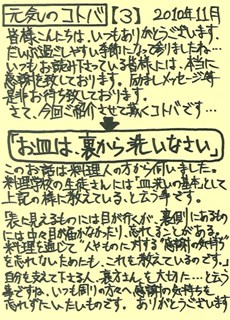 元気のコトバ【3】 2010年11月
皆様こんにちは、いつもありがとうございます。
だいぶ過ごしやすい季節になって参りましたね…
いつもお読み下っている皆様には、本当に
感謝を致しております。励ましメッセージ等
是非お待ち致しております。
さて、今回ご紹介させて頂くコトバです…
「お皿は、裏から洗いなさい」
このお話は料理人の方から伺いました。
料理学校の生徒さんには"皿洗いの基本"として
上記の様に教えている、と言う事です。
「表に見えるものには目が行くが、裏側にあるもの
には中々目が届かなかったり、忘れることがある。
料理を通じて"人やものに対する"感謝の気持ち"
を忘れないためにも、これを教えているのです。」
自分を支えて下さる人、裏方さんを大切に…と言う
事ですね。いつも周りの方々へ感謝の気持ちを
忘れずにいたいものです。ありがとうございます